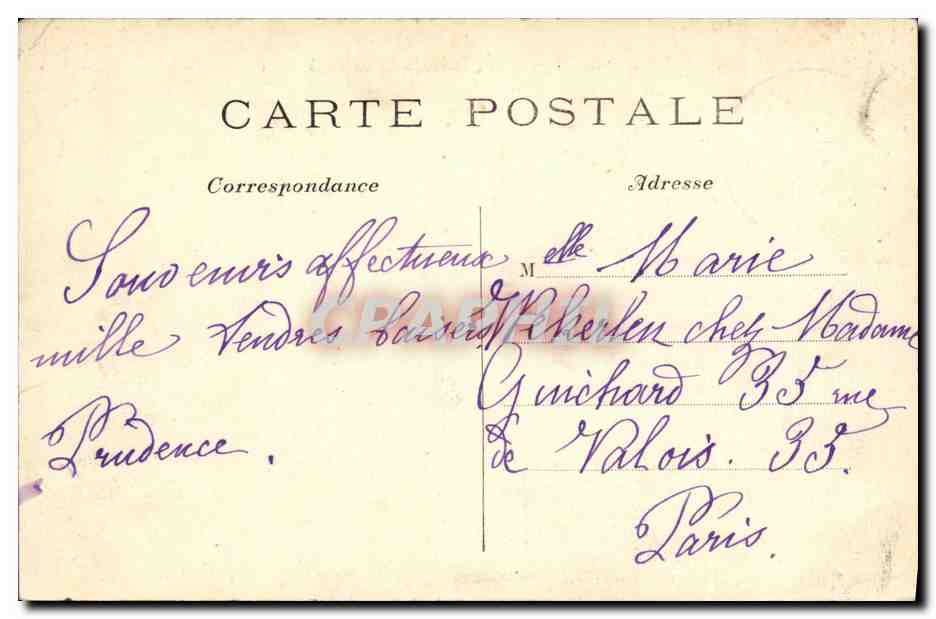 CARTE POSTALE
Correspondance
Souvenirs affectueux
mille tendres baisers
Prudence.
Adresse
Melle Marie
Wekerlen chez Madame
Guichard 35 rue
de Valois. 35.
Paris.